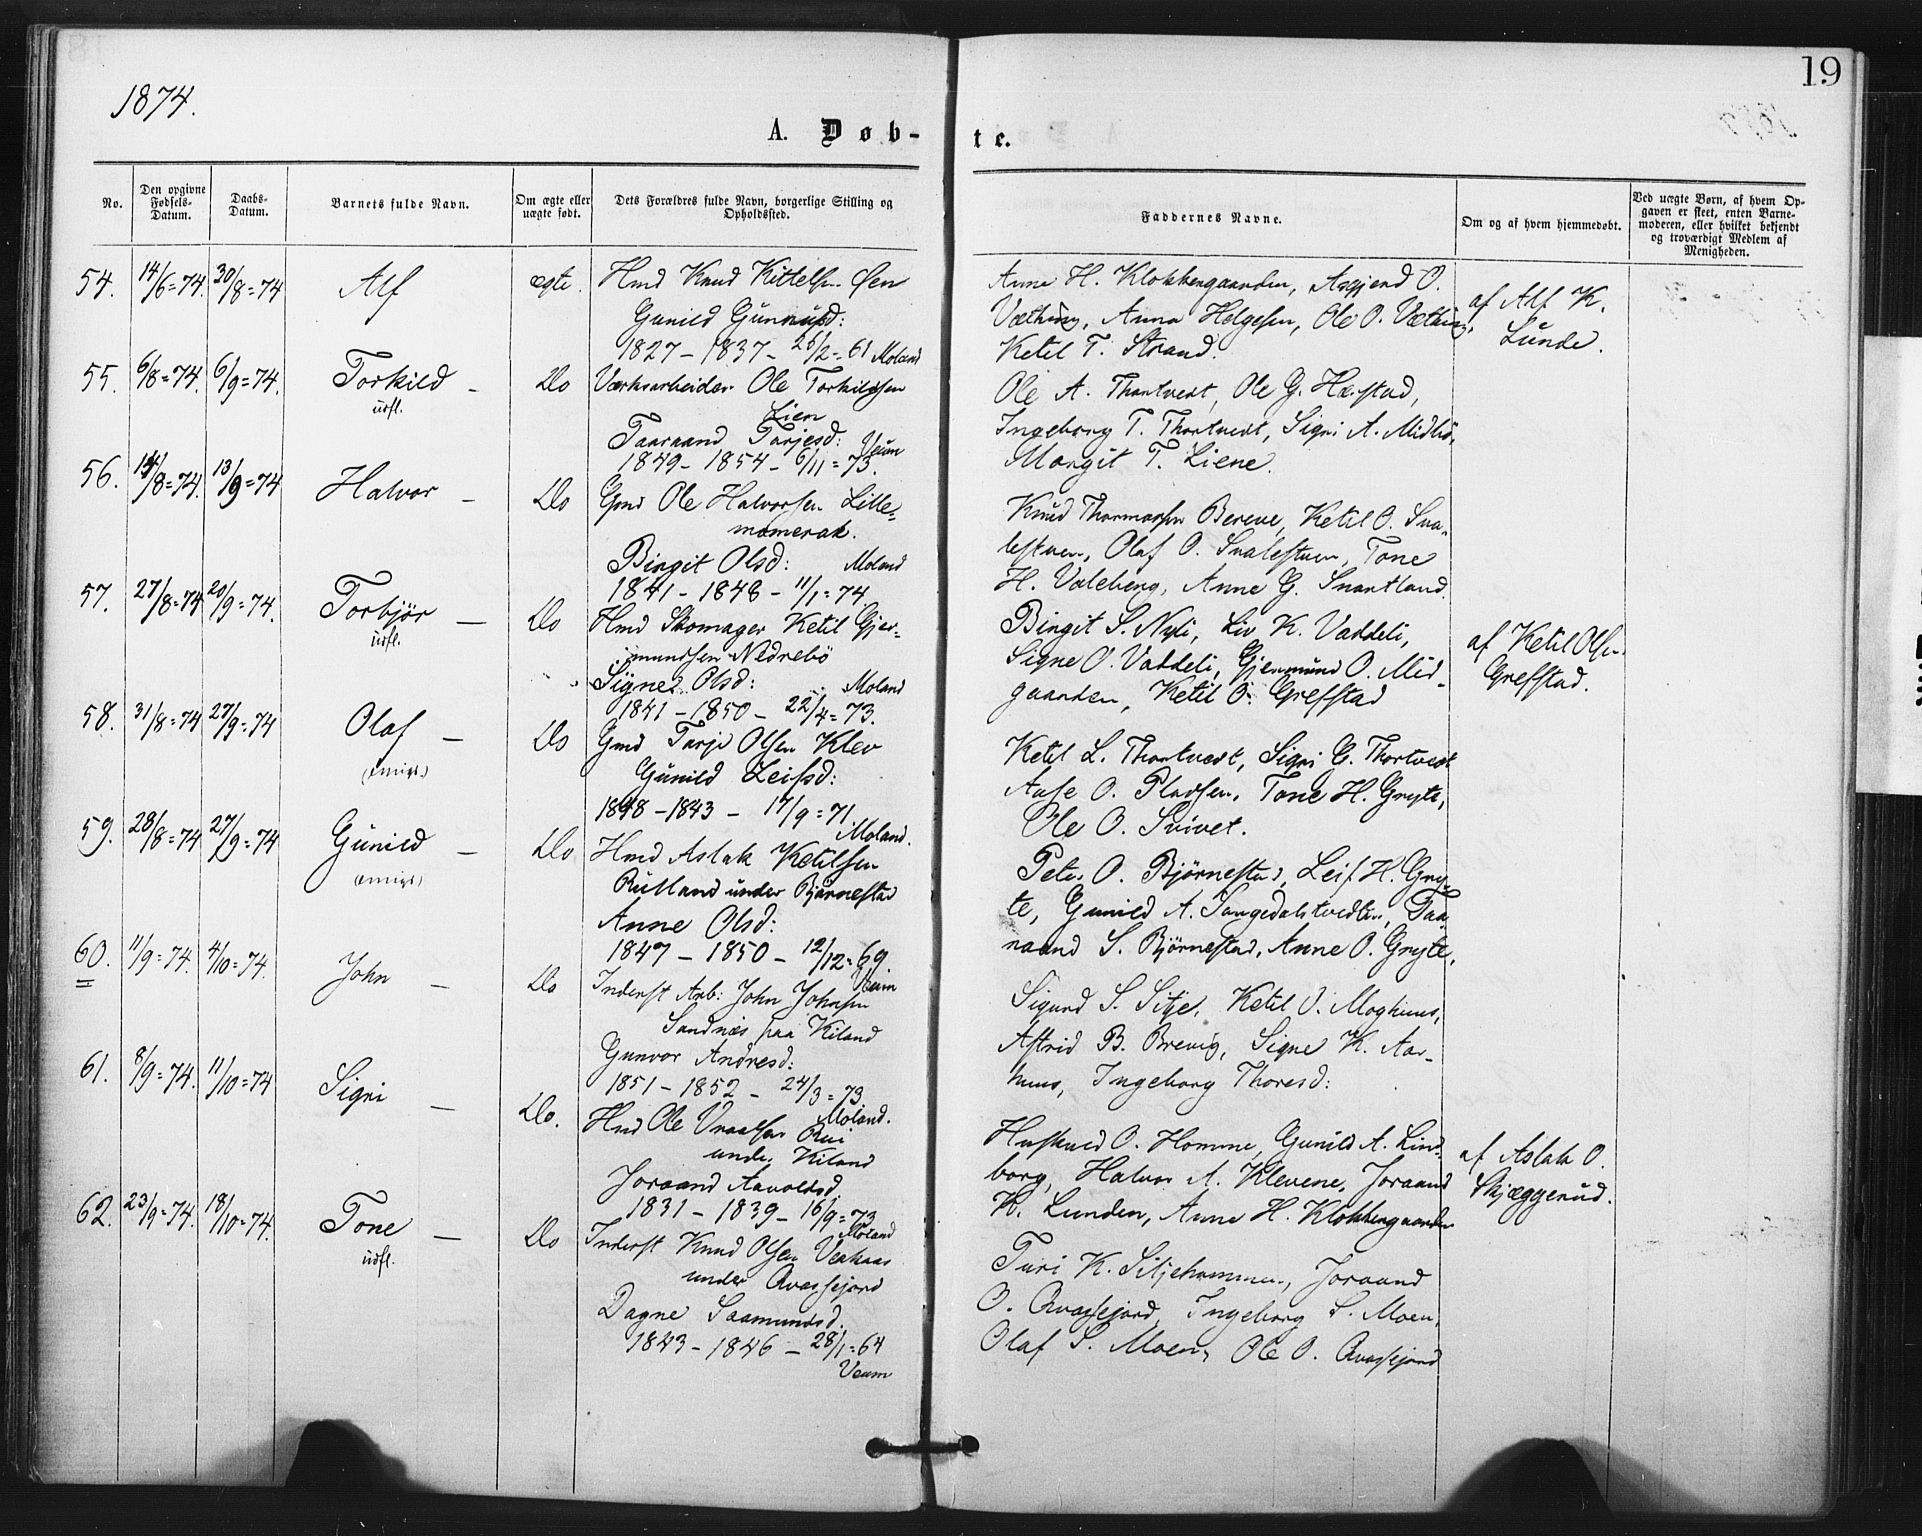 1874.
19
A. Døb-
te.
No.
Den opgivne Fødsels-Datum.
Daabs-Datum.
Barnets fulde Navn.
Om ægte eller uægte født.
Dets Forældres fulde Navn, borgerlige Stilling og Opholdssted.
Faddernes Navne.
Om og af hvem hjemmedøbt.
Ved uægte Børn, af hvem Op-
gaven er skeet, enten Barne-
moderen, eller hvilket bekjendt
og troværdigt Medlem af
Menigheden.
54. 14/6=74. 30/8=74 Alf ægte. Hmd Knud Kittelsen Øen
Gunild Gunnufsd:
1827 - 1837 - /2=61 Moland
Anne H. Klokkergaarden, Asgjerd O.
Anna Helgesen, Ole O.
Ketil T. Strand.
af Alf K.
Lunde.
55. 6/8=74. 6/9=74. Torkild - Do Værksarbeider Ole Torkildsen
udfl.
Lien
Taaraand Tarjesd: Veum
1849 - 1854 - 6/11=73.
Ole A. Thortvedt, Ole G. Hæstad,
Ingeborg T. Thortvedt, Sigri A. Midbö,
Margit T. Liene.
56. /8=74. 13/9=74 Halvor - Do Gmd Ole Halvorsen Lille=
momerak.
Birgit Olsd: Moland
1841 - 1848 - 11/1=74.
Knud Thormodsen Bereve, Ketil O. Sva-
lestuen, Olaf O. Svalestuen, Tone
H. Valeberg, Anne G. Snartland.
57. 27/8=74 20/9=74. Torbjör - Do Hmd Skomager Ketil Gjer-
udfl.
mundsen Nedrebö
Signe Olsd: Moland
1841 - 1850 - 22/4=73.
Birgit S. Nyli, Liv K. Vaddeli,
Signe O. Vaddeli, Gjermund O. Mid-
gaarden, Ketil O. Grefstad
af Ketil Olsen
Grefstad.
58. 31/8=74 27/9=74 Olaf - Do Gmd Tarje Olsen Klev
(emigr.)
Gunild Leifsd:
1848 - 1843 - 17/9=71
Moland.
Ketil L. Thortvedt, Sigri G. Thortvedt
Aase O. Pladsen, Tone H. Gryte,
Ole O. Svivet.
59. 28/8=74 27/9=74 Gunild - Do Hmd Aslak Ketilsen
(emigr.)
Rutland under Bjørnestad
Anne Olsd:
1847 - 1850 - 12/12=69
Veum
Peter O. Bjørnestad, Leif H. Gry-
te, Gunild A. Taa-
raand S. Bjørnestad, Anne O. Gryte,
60. 11/9=74. 4/10=74. John - Do Inderst Arb: John Johnsen
Sandnæs paa Kiland
Gunvor Andresd:
1851 - 1852 - 24/3=73
Moland.
Sigurd S. Sitje, Ketil O. Moghuus,
Astrid B. Brevig, Signe K. Aar-
huus, Ingeborg Thoresd:
61. 8/9=74. 11/10=74 Sigri - Do. Hmd Ole Vraalsen Rui
under Kiland
Joraand Aavoldsd.
1831 - 1839 - 16/9=73
Moland
O. Homme, Gunild A. Lind-
borg, Halvor A. Klevene, Joraand
K. Lunden, Anne H. Klokkergaarden
af Aslak O.
Skjæggerud.
62. 23/9=74. 18/10=74. Tone - Do Inderst Knud Olsen
udfl.
under Qvassejord
Dagne Saamundsd.
1843 - 1846 - 28/1=64
Veum
Turi K. Joraand
O. Qvassejord, Ingeborg S. Moen,
Olaf S. Moen, Ole O. Qvassejord